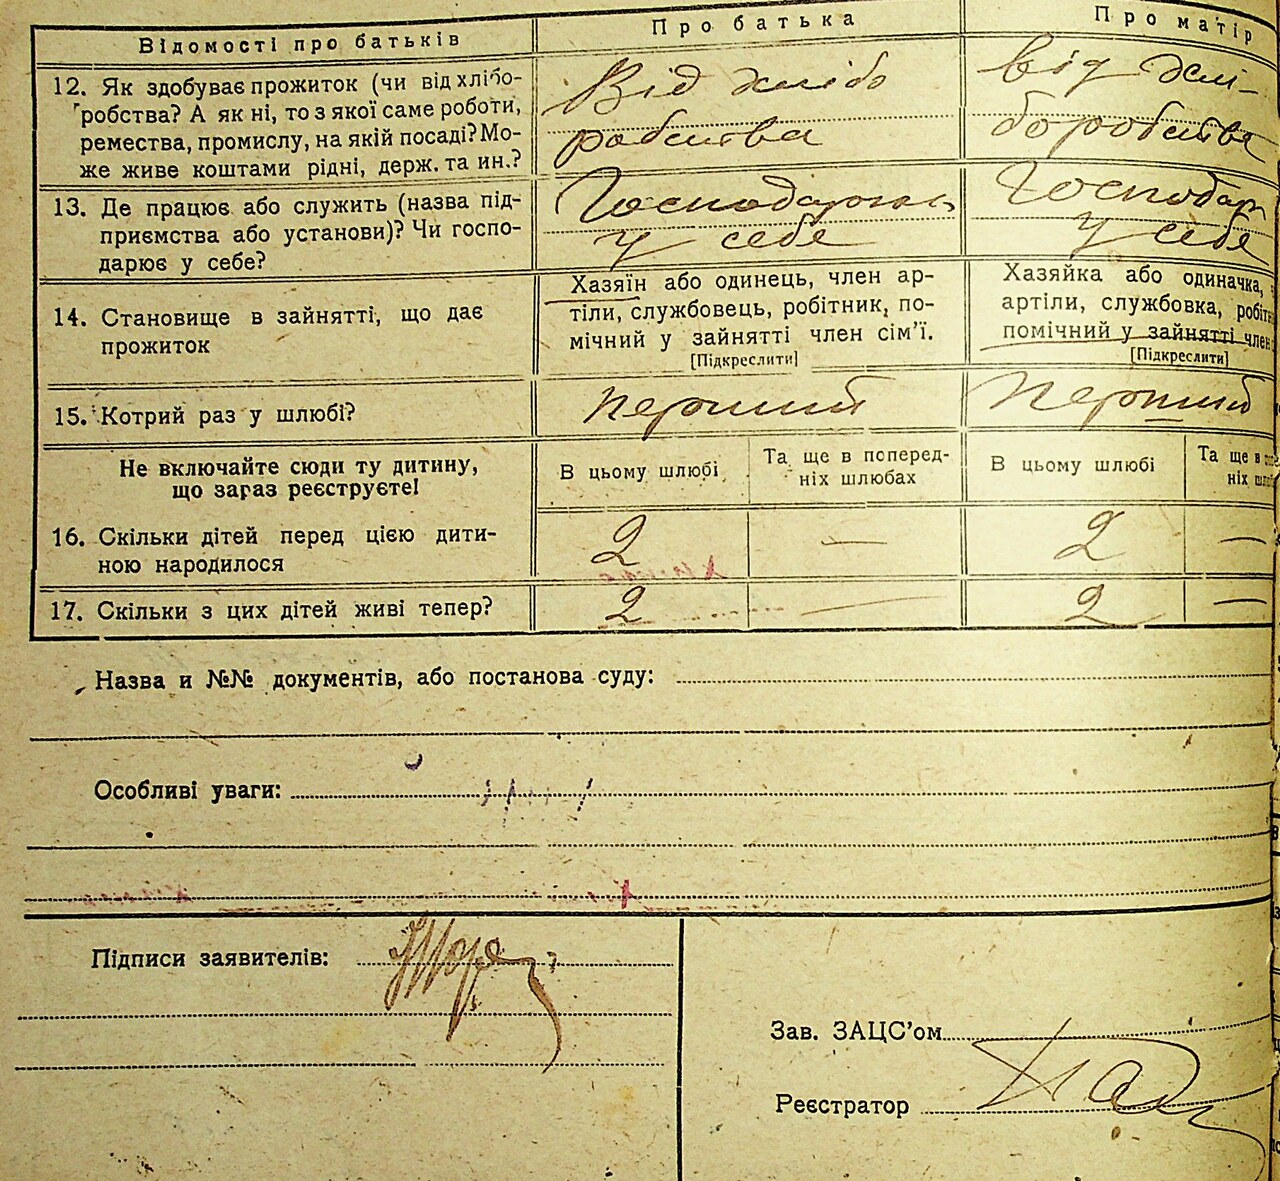 Відомості про батьків
Про батька
Про матір
12. Як здобуває прожиток (чи від хлібо-
робства? А як ні, то з якої саме роботи,
ремества, промислу, на якій посаді? Мо-
же живе коштами рідні, держ. та ин.?
Від хлібо
робства
від хлі-
боробства
13. Де працює або служить (назва під-
приємства або установи)? Чи госпо-
дарює у себе?
у себе
Господар
у себе
14. Становище в зайнятті, що дає
прожиток
Хазяїн або одинець, член ар-
тіли, службовець, робітник, по-
мічний у зайнятті член сім'ї.
[Підкреслити]
Хазяйка або одиначка,
артіли, службовка, робітн
помічний у зайнятті член
[Підкреслити]
15. Котрий раз у шлюбі?
перший
Перший
Не включайте сюди ту дитину,
що зараз реєструєте!
В цьому шлюбі
Та ще в поперед-
ніх шлюбах
В цьому шлюбі
Та ще в
ніх
16. Скільки дітей перед цією дити-
ною народилося
2 — 2 —
17. Скільки з цих дітей живі тепер?
2 — 2 —
Назва и №№ документів, або постанова суду:
Особливі уваги:
Підписи заявителів:
Зав. ЗАЦС'ом
Реєстратор